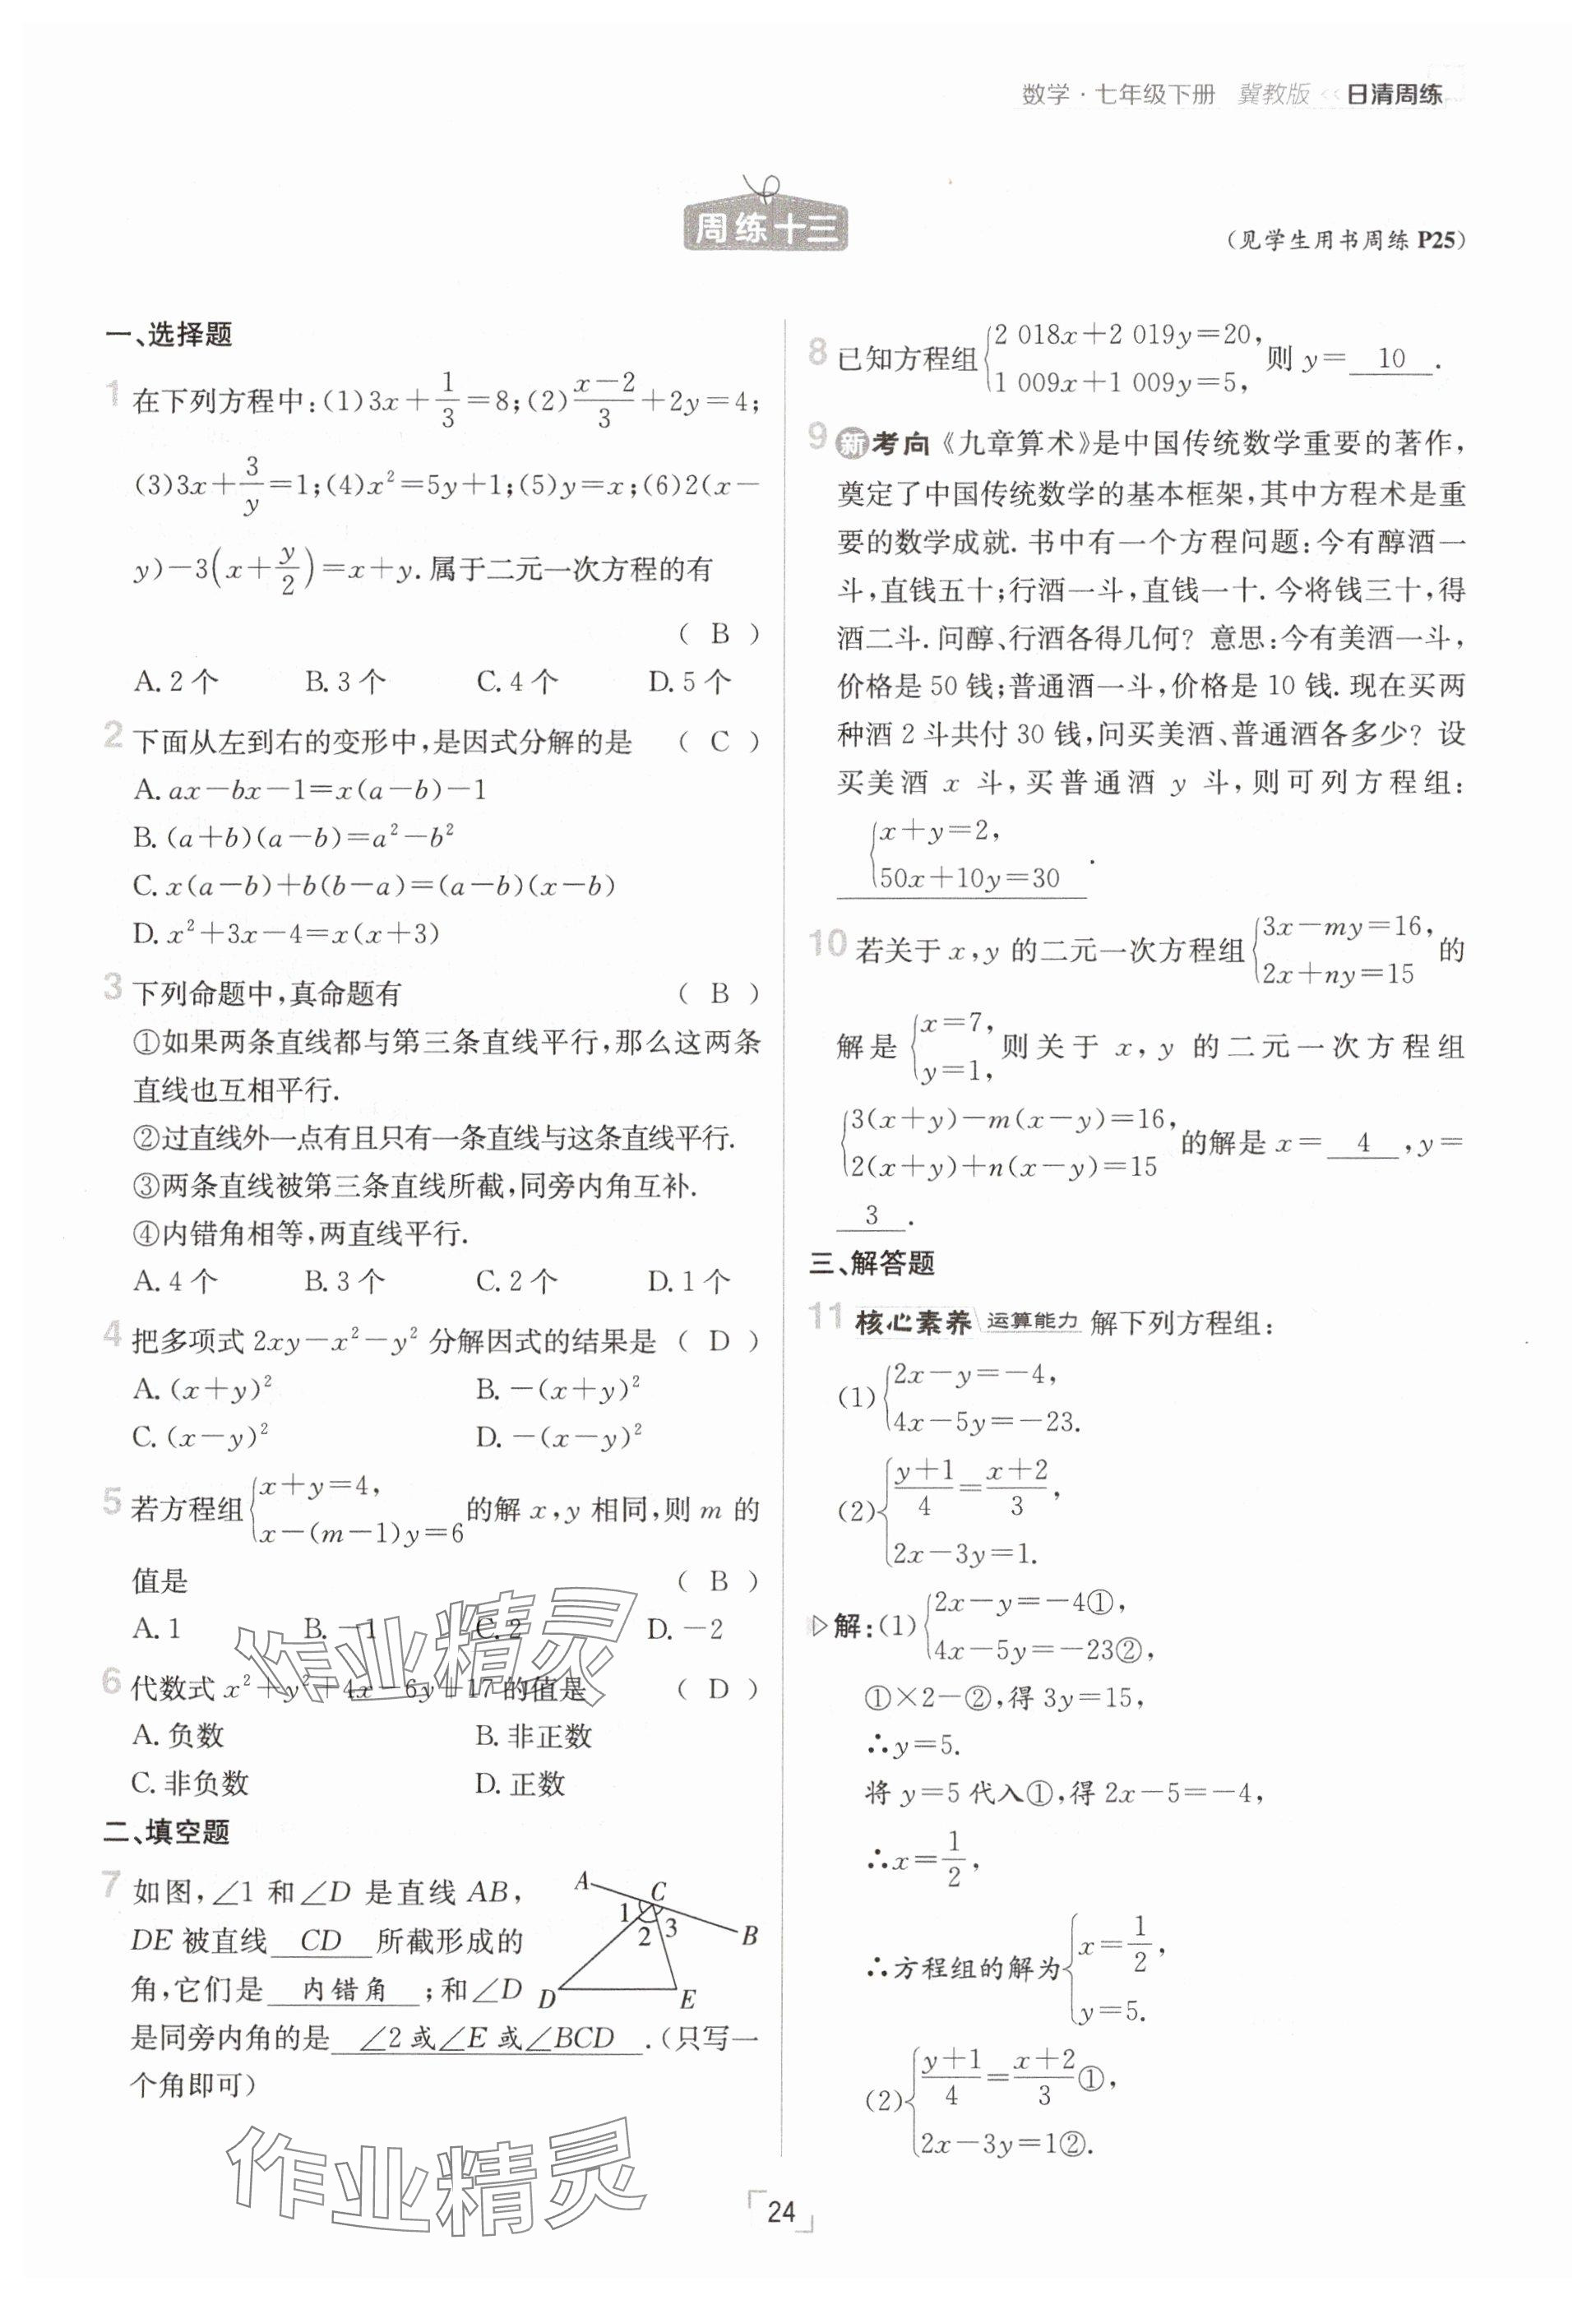 数学·七年级下册 冀教版 << 日清周练
周练十三
(见学生用书周练 P25)
一、选择题
1 在下列方程中:(1)3x+1/3=8;(2)(x-2)/3+2y=4;
(3)3x+3/y=1;(4)x²=5y+1;(5)y=x;(6)2(x-
y)-3(x+y/2)=x+y.属于二元一次方程的有
( B )
A. 2 个 B. 3 个 C. 4 个 D. 5 个
2 下面从左到右的变形中,是因式分解的是 ( C )
A. ax-bx-1=x(a-b)-1
B. (a+b)(a-b)=a²-b²
C. x(a-b)+b(b-a)=(a-b)(x-b)
D. x²+3x-4=x(x+3)
3 下列命题中,真命题有 ( B )
①如果两条直线都与第三条直线平行,那么这两条
直线也互相平行.
②过直线外一点有且只有一条直线与这条直线平行.
③两条直线被第三条直线所截,同旁内角互补.
④内错角相等,两直线平行.
A. 4 个 B. 3 个 C. 2 个 D. 1 个
4 把多项式 2xy-x²-y² 分解因式的结果是 ( D )
A. (x+y)² B. -(x+y)²
C. (x-y)² D. -(x-y)²
5 若方程组{x+y=4, x-(m-1)y=6 的解 x,y 相同,则 m 的
值是 ( B )
A. 1 B. -1 C. 2 D. -2
6 代数式 x²+y²+4x-6y+17 的值是 ( D )
A. 负数 B. 非正数
C. 非负数 D. 正数
二、填空题
7 如图,∠1 和∠D 是直线 AB,
DE 被直线 CD 所截形成的
角,它们是 内错角 ;和∠D
是同旁内角的是 ∠2 或∠E 或∠BCD .(只写一
个角即可)
A C 1 2 3 B D E
8 已知方程组{2 018x+2 019y=20, 1 009x+1 009y=5, 则 y= 10 .
9 新考向 《九章算术》是中国传统数学重要的著作,
奠定了中国传统数学的基本框架,其中方程术是重
要的数学成就. 书中有一个方程问题:今有醇酒一
斗,直钱五十;行酒一斗,直钱一十. 今将钱三十,得
酒二斗. 问醇、行酒各得几何? 意思:今有美酒一斗,
价格是 50 钱;普通酒一斗,价格是 10 钱. 现在买两
种酒 2 斗共付 30 钱,问买美酒、普通酒各多少? 设
买美酒 x 斗,买普通酒 y 斗,则可列方程组:
{x+y=2, 50x+10y=30 .
10 若关于 x,y 的二元一次方程组{3x-my=16, 2x+ny=15 的
解是{x=7, y=1, 则关于 x,y 的二元一次方程组
{3(x+y)-m(x-y)=16, 2(x+y)+n(x-y)=15 的解是 x= 4 ,y=
3 .
三、解答题
11 核心素养 运算能力 解下列方程组:
(1){2x-y=-4, 4x-5y=-23.
(2){(y+1)/4=(x+2)/3, 2x-3y=1.
▷解:(1){2x-y=-4①, 4x-5y=-23②,
①×2-②,得 3y=15,
∴y=5.
将 y=5 代入①,得 2x-5=-4,
∴x=1/2,
∴方程组的解为{x=1/2, y=5.
(2){(y+1)/4=(x+2)/3①, 2x-3y=1②.
作业精灵
作业精灵
24